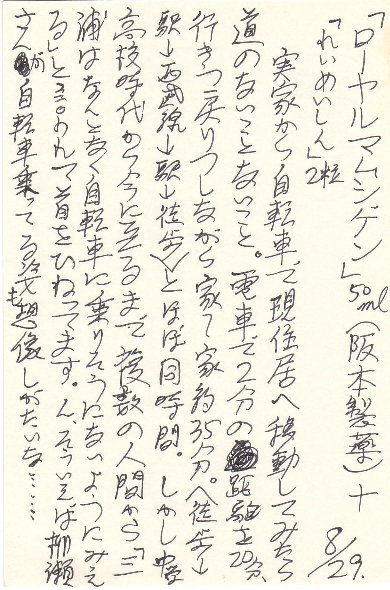 「ローヤルマムシゲン」50ml（阪本製薬）＋
「れいめいしん」2粒
8/29.
実家から自転車で現住居へ移動してみたら
道のないことないこと。電車で2分の距離を20分、
行きつ戻りつしながら家→家約35分。〈徒歩→
駅→西武線→駅→徒歩〉とほぼ同時間。しかし中学
高校時代から今に至るまで複数の人間から「三
浦はなんとなく自転車に乗りそうにないようにみえ
る」と言われて首をひねってます。ん、そういえば柳瀬
さんが自転車乗ってる姿も想像しがたいな………